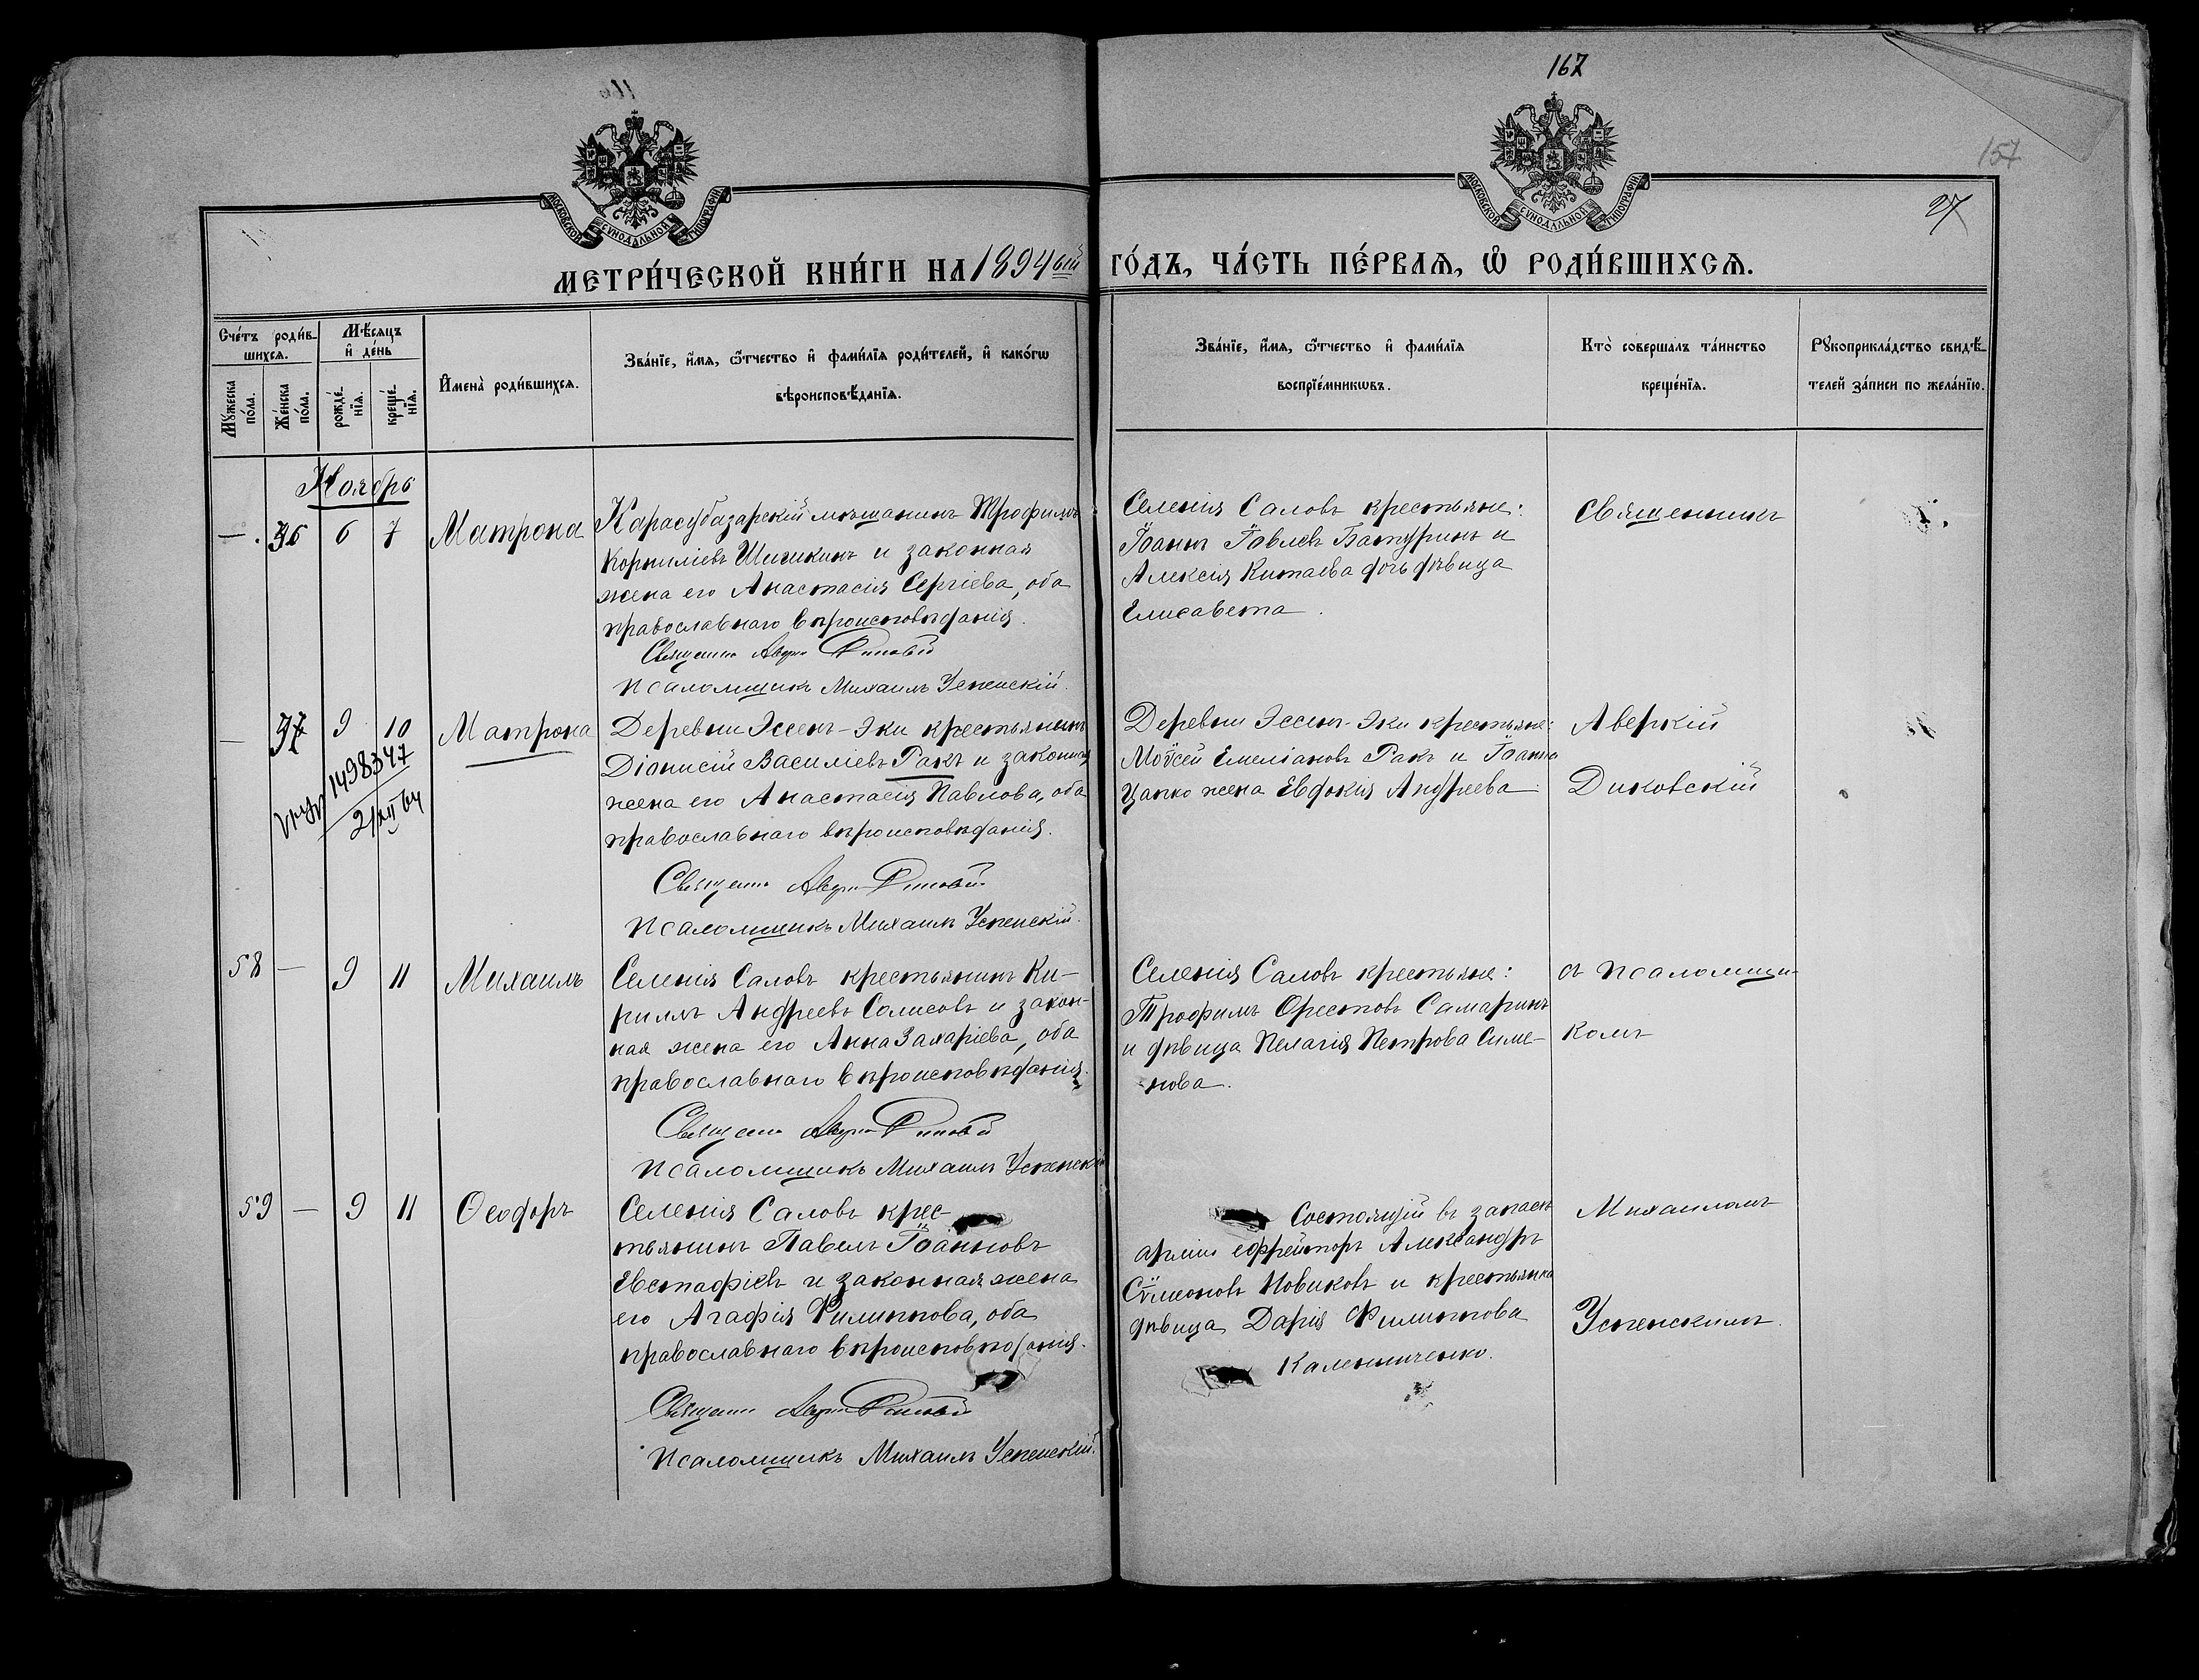 167
157
27
МОСКОВСКОЙ СѴНОДАЛЬНОЙ ТИПОГРАФІИ
МОСКОВСКОЙ СѴНОДАЛЬНОЙ ТИПОГРАФІИ
МЕТРИ́ЧЕСКОЙ КНИ́ГИ НА 1894ый ГО́ДЪ, ЧА́СТЬ ПЕ́РВАѦ, Ѽ РОДИ́ВШИХСѦ.
Сче́тъ роди́в-
шихсѧ.
Мꙋжеска по́ла.
Же́нска по́ла.
Мѣ́сѧцъ
и҆ де́нь
рожде́-
нїѧ.
креще́-
нїѧ.
И҆мена̀ роди́вшихсѧ.
Зва́нїе, и҆́мѧ, ѻ҆́тчество и҆ фами́лїѧ роди́телей, и҆ како́гѡ
вѣроисповѣ́данїѧ.
Зва́нїе, и҆́мѧ, ѻ҆́тчество и҆ фами́лїѧ
воспрїе́мникѡвъ.
Кто̀ соверша́лъ та́инство
креще́нїѧ.
Рꙋкоприкла́дство свидѣ́-
телей за́писи по жела́нїю.
Ноябрь
— . 36 6 7 Матрона
Карасубазарскій мѣщанинъ Трофимъ
Корниліевъ Шишкинъ и законная
жена его Анастасія Сергіева, оба
православнаго вѣроисповѣданія.
Священн. Аверк. Диковскій
Псаломщикъ Михаилъ Успенскій.
Селенія Саловъ крестьяне:
Іоаннъ Іовлевъ Батуринъ и
Алексія Китаева дочь дѣвица
Елисавета.
Священникъ
— 37 9 10 Матрона
1498347
21/XII 64
Деревни Эссенъ-Эки крестьянинъ
Діонисій Василіевъ Ракъ и законная
жена его Анастасія Павлова, оба
православнаго вѣроисповѣданія.
Священн. Аверк. Диковскій
Псаломщикъ Михаилъ Успенскій.
Деревни Эссенъ-Эки крестьяне:
Моѵсей Емеліановъ Ракъ и Іоанна
Цапко жена Евдокія Андреева
Аверкій
Диковскій
58 — 9 11 Михаилъ
Селенія Саловъ крестьянинъ Ки-
риллъ Андреевъ Солисовъ и закон-
ная жена его Анна Захаріева, оба
православнаго вѣроисповѣданія.
Священн. Аверк. Диковскій
Псаломщикъ Михаилъ Успенскій
Селенія Саловъ крестьяне:
Трофимъ Орестовъ Самаринъ
и дѣвица Пелагія Петрова Симе-
нова.
съ псаломщи-
комъ
59 — 9 11 Ѳеодоръ
Селенія Саловъ крес-
тьянинъ Павелъ Іоанновъ
Евстафіевъ и законная жена
его Агафія Филиппова, оба
православнаго вѣроисповѣданія.
Священн. Аверк. Диковскій
Псаломщикъ Михаилъ Успенскій.
Состоящій въ запасѣ
арміи ефрейторъ Александръ
Сѵмеоновъ Новиковъ и крестьянка
дѣвица Дарія Филиппова
Калениченко.
Михаиломъ
Успенскимъ.